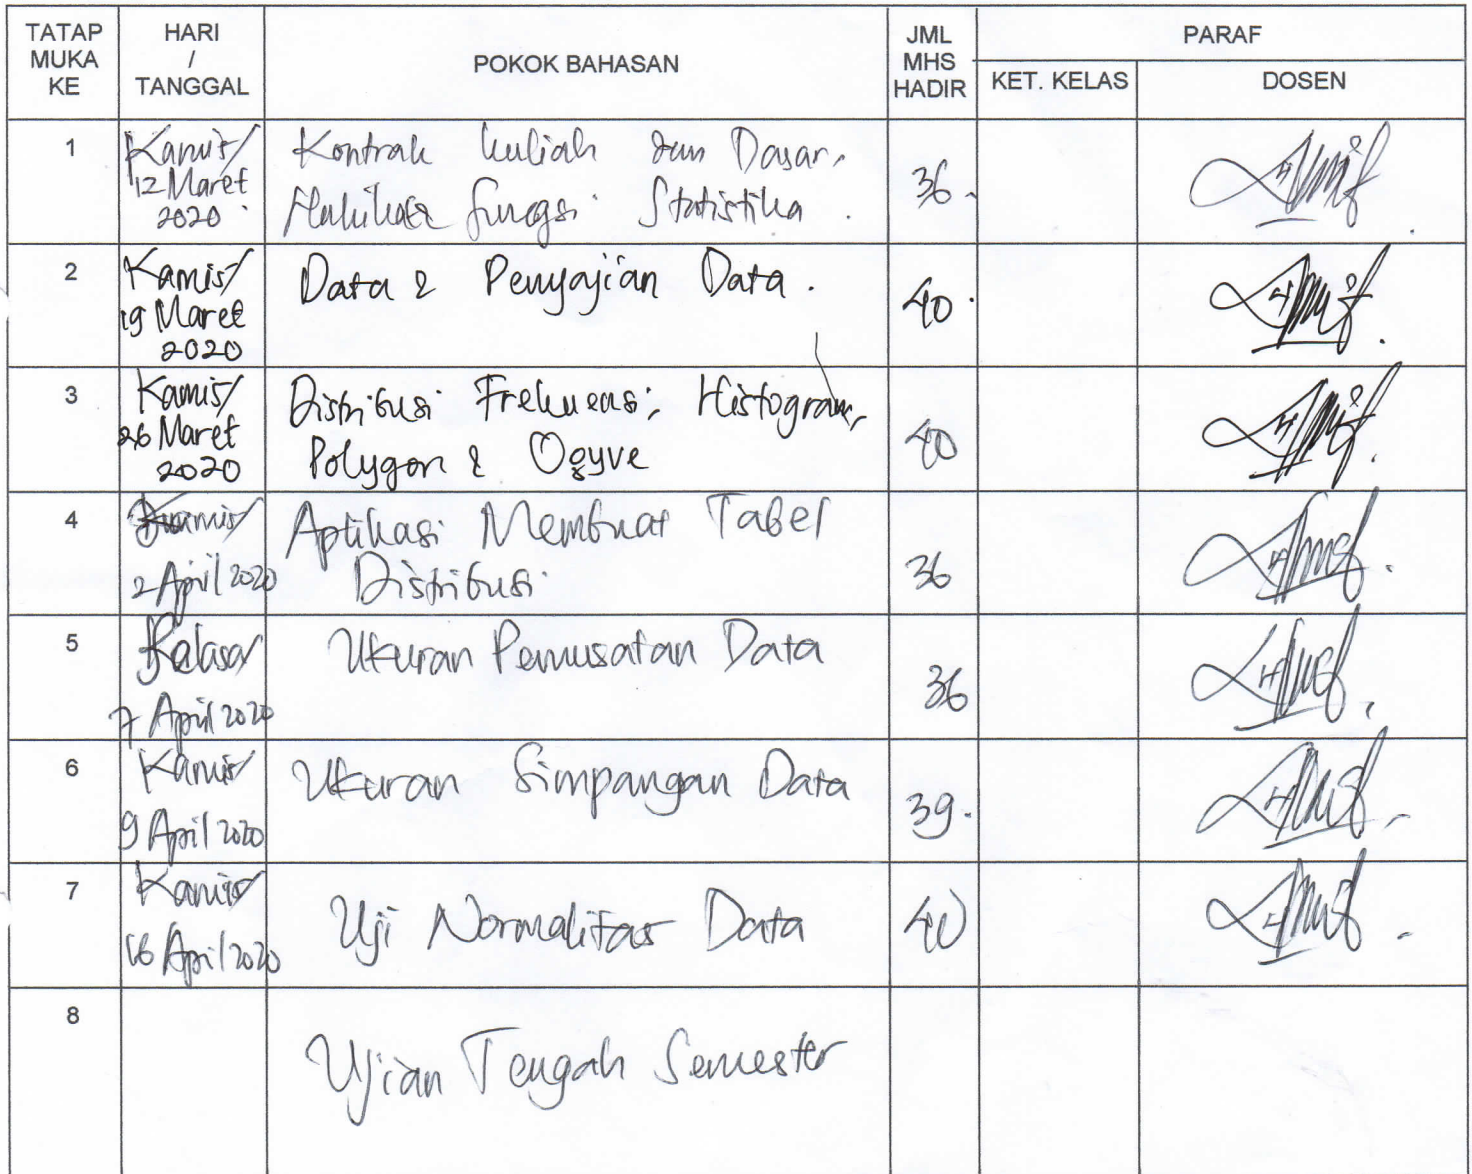 TATAP MUKA KE
HARI / TANGGAL
POKOK BAHASAN
JML MHS HADIR
PARAF
KET. KELAS
DOSEN
1
Kamis/
12 Maret
2020
Kontrak kuliah dan Dasar,
Hakikat fungsi Statistika.
36.
2
Kamis/
19 Maret
2020
Data & Penyajian Data.
40.
3
Kamis/
26 Maret
2020
Distribusi Frekuensi, Histogram,
Polygon & Ogyve
40
4
Kamis/
2 April 2020
Aplikasi Membuat Tabel
Distribusi
36
5
Selasa/
7 April 2020
Ukuran Pemusatan Data
36
6
Kamis/
9 April 2020
Ukuran Simpangan Data
39.
7
Kamis/
16 April 2020
Uji Normalitas Data
40
8
Ujian Tengah Semester